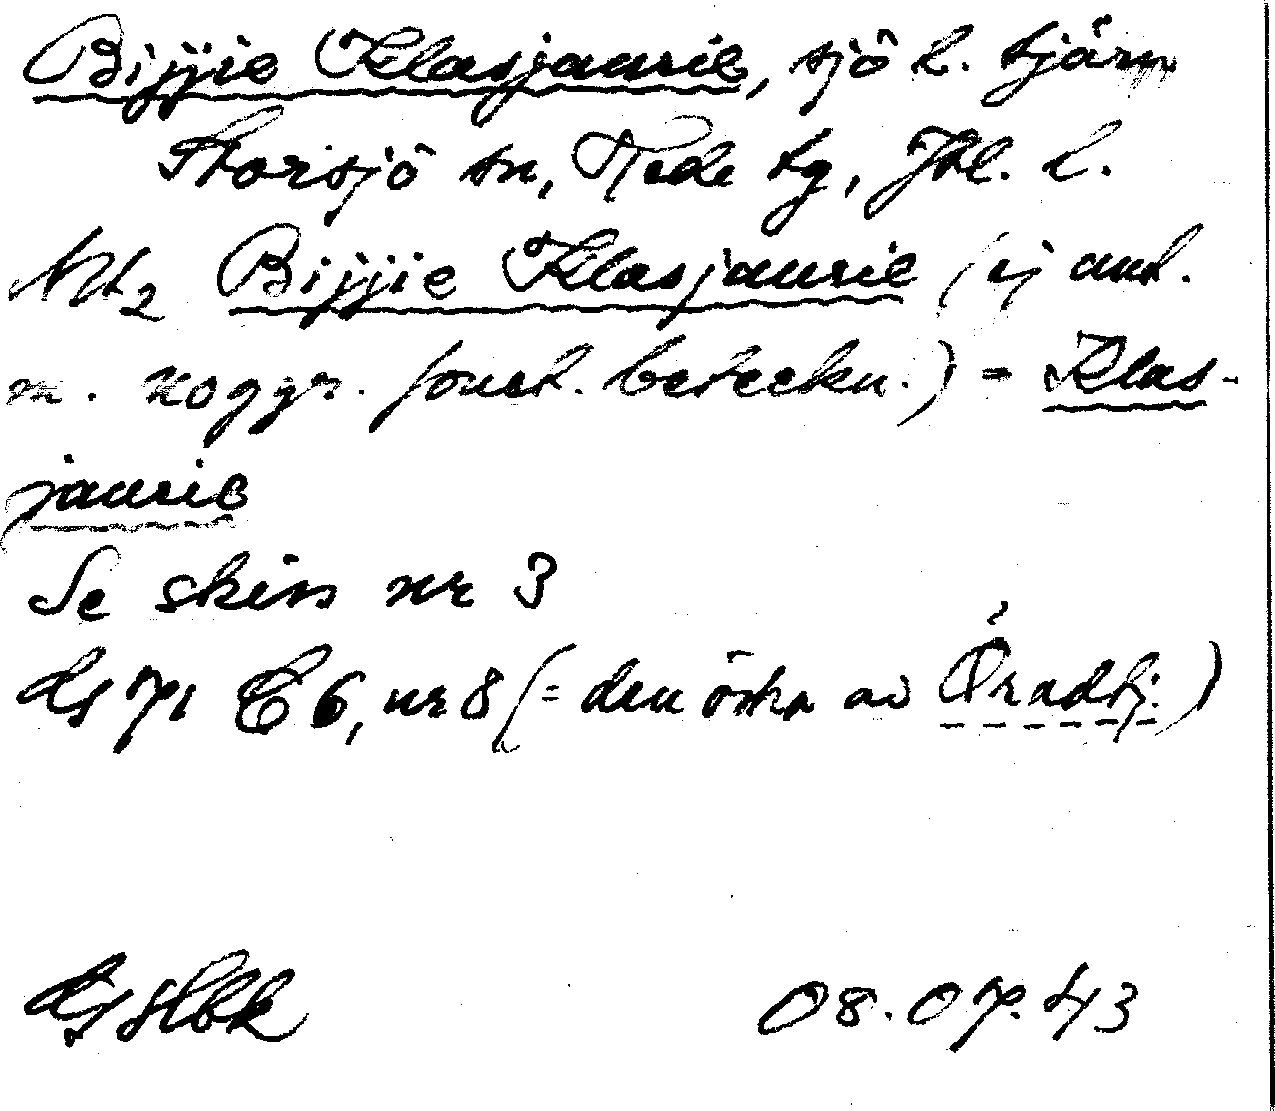 Bijjie Klasjaurie, sjö l. tjärn
Storsjö sn, Nede tg, Jtl. l.
Bijjie Klasjaurie (ej ant.
m. noggr. fonet. beteckn.) = Klas-
jaurie
Se skiss nr 3
C6, nr 8 (= den östra av Öradtj.)
08.07.43